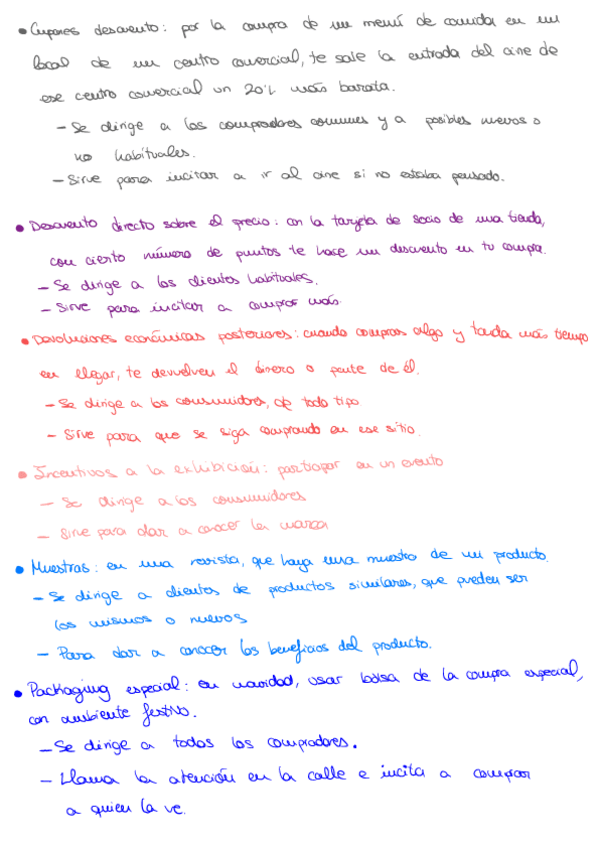 • Cupones descuento: por la compra de un menú de comida en un
local de un centro comercial, te sale la entrada del cine de
ese centro comercial un 20% más barata.
- Se dirige a los compradores comunes y a posibles nuevos o
no habituales.
- Sirve para incitar a ir al cine si no estaba pensado.
• Descuento directo sobre el precio: con la tarjeta de socio de una tienda,
con cierto número de puntos te hace un descuento en tu compra.
- Se dirige a los clientes habituales.
- Sirve para incitar a comprar más.
• Devoluciones económicas posteriores: cuando compras algo y tarda más tiempo
en llegar, te devuelven el dinero o parte de él.
- Se dirige a los consumidores, de todo tipo
- Sirve para que se siga comprando en ese sitio.
• Incentivos a la exhibición: participar en un evento
- Se dirige a los consumidores
- Sirve para dar a conocer la marca
• Muestras: en una revista, que haya una muestra de un producto.
- Se dirige a clientes de productos similares, que pueden ser
los mismos o nuevos
- Para dar a conocer los beneficios del producto.
• Packaging especial: en navidad, usar bolsa de la compra especial,
con ambiente festivo.
- Se dirige a todos los compradores.
- Llama la atención en la calle e incita a comprar
a quien la ve.